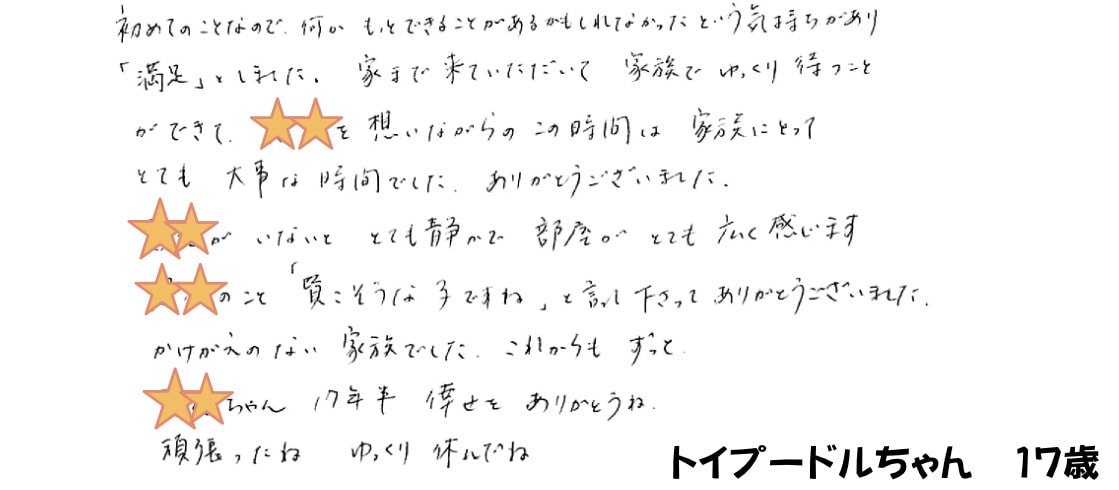 初めてのことなので、何か もっとできることがあるかもしれてなかったという気持ちがあり
「満足」としました。 家まで来ていただいて 家族で ゆっくり待つこと
ができて、 を想いながらの この時間は 家族にとって
とても 大事な時間でした。ありがとうございました。
が いないと とても静かで 部屋が とても 広く感じます
のこと「賢こそうな子ですね」と言って下さって ありがとうございました。
かけがえのない 家族でした。これからも ずっと。
ちゃん 17年半 倖せを ありがとうね。
頑張ったね ゆっくり 休んでね
トイプードルちゃん 17歳